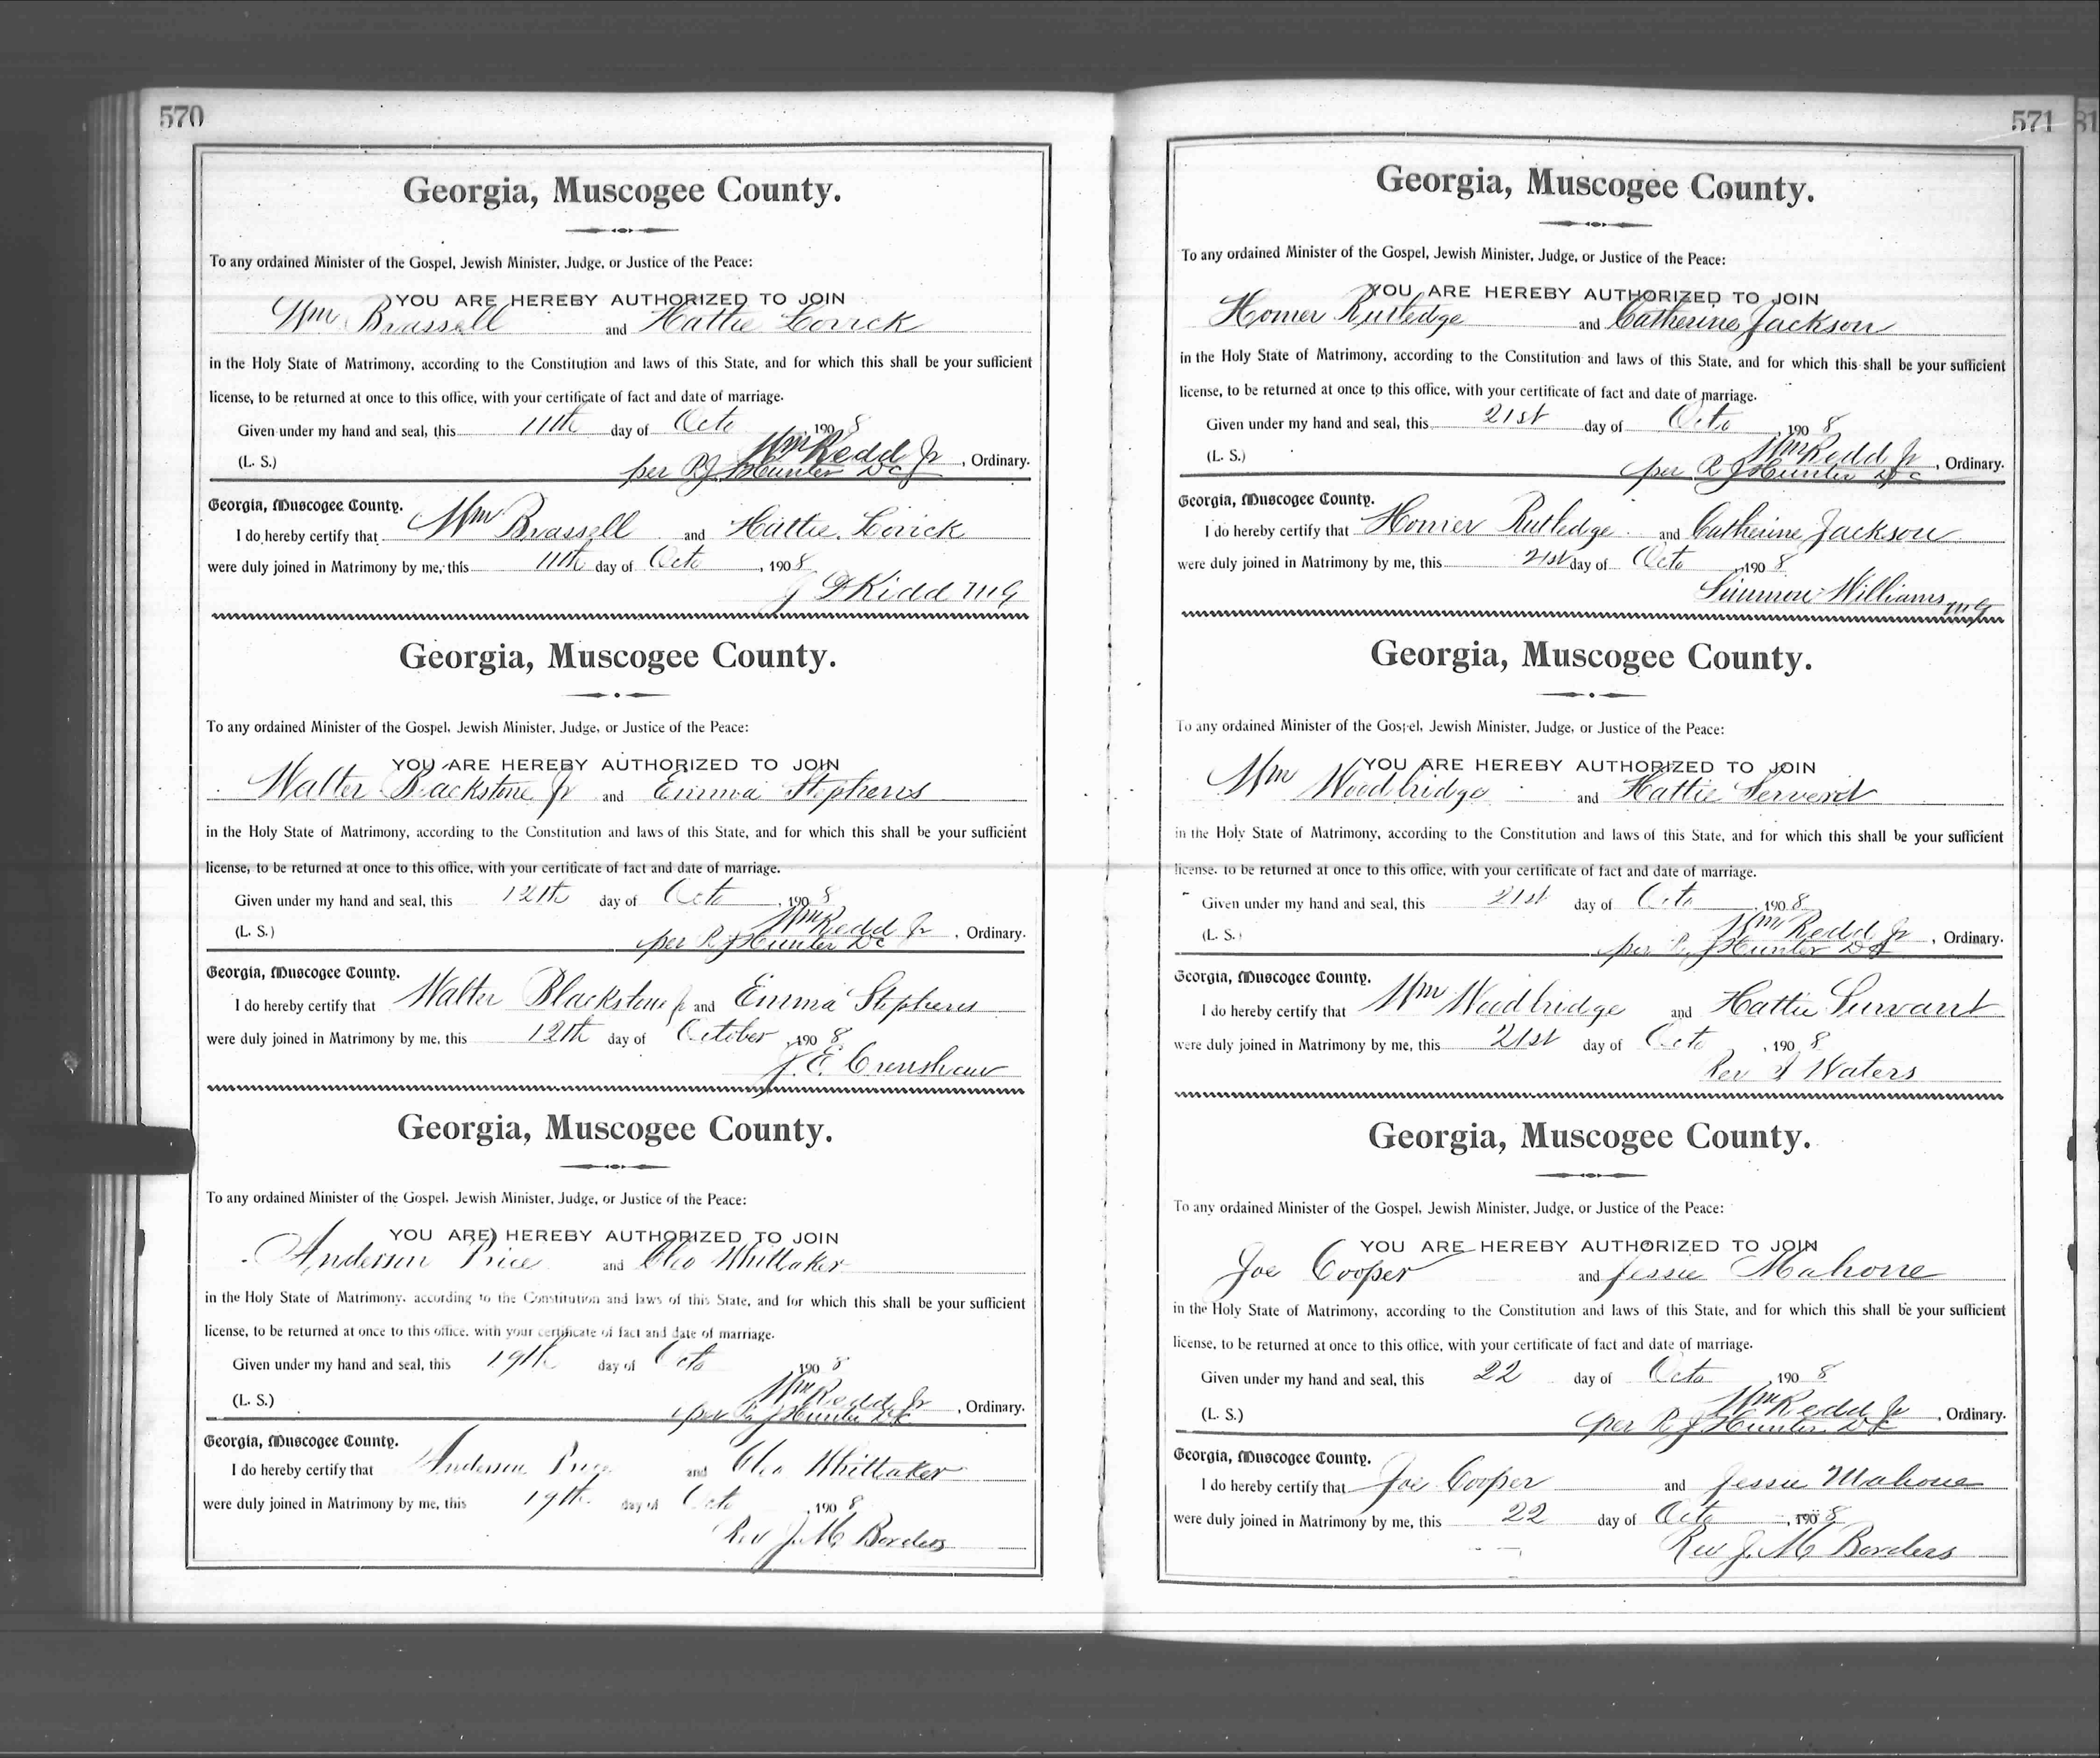 570
Georgia, Muscogee County.
To any ordained Minister of the Gospel, Jewish Minister, Judge, or Justice of the Peace:
YOU ARE HEREBY AUTHORIZED TO JOIN
Wm Brassell and Hattie Lovick
in the Holy State of Matrimony, according to the Constitution and laws of this State, and for which this shall be your sufficient
license, to be returned at once to this office, with your certificate of fact and date of marriage.
Given under my hand and seal, this 11th day of Octo 1908
Wm Redd Jr
(L. S.) per R J Hunter DC , Ordinary.
Georgia, Muscogee County.
I do hereby certify that Wm Brassell and Hattie Lovick
were duly joined in Matrimony by me, this 11th day of Octo , 1908
Kidd MG
Georgia, Muscogee County.
To any ordained Minister of the Gospel, Jewish Minister, Judge, or Justice of the Peace:
YOU ARE HEREBY AUTHORIZED TO JOIN
Walter Blackstone Jr and Emma Stephens
in the Holy State of Matrimony, according to the Constitution and laws of this State, and for which this shall be your sufficient
license, to be returned at once to this office, with your certificate of fact and date of marriage.
Given under my hand and seal, this 12th day of Octo , 1908
Wm Redd Jr
(L. S.) per R J Hunter DC , Ordinary.
Georgia, Muscogee County.
I do hereby certify that Walter Blackstone Jr and Emma Stephens
were duly joined in Matrimony by me, this 12th day of October , 1908
J. E. Crenshaw
Georgia, Muscogee County.
To any ordained Minister of the Gospel, Jewish Minister, Judge, or Justice of the Peace:
YOU ARE HEREBY AUTHORIZED TO JOIN
Anderson Price and Cleo Whittaker
in the Holy State of Matrimony, according to the Constitution and laws of this State, and for which this shall be your sufficient
license, to be returned at once to this office, with your certificate of fact and date of marriage.
Given under my hand and seal, this 19th day of Octo , 1908
Wm Redd Jr
(L. S.) per R J Hunter DC , Ordinary.
Georgia, Muscogee County.
I do hereby certify that Anderson Price and Cleo Whittaker
were duly joined in Matrimony by me, this 19th day of Octo , 1908
Rev J. M Borders
571
Georgia, Muscogee County.
To any ordained Minister of the Gospel, Jewish Minister, Judge, or Justice of the Peace:
YOU ARE HEREBY AUTHORIZED TO JOIN
Homer Rutledge and Catherine Jackson
in the Holy State of Matrimony, according to the Constitution and laws of this State, and for which this shall be your sufficient
license, to be returned at once to this office, with your certificate of fact and date of marriage.
Given under my hand and seal, this 21st day of Octo , 1908
Wm Redd Jr
(L. S.) per R J Hunter DC , Ordinary.
Georgia, Muscogee County.
I do hereby certify that Homer Rutledge and Catherine Jackson
were duly joined in Matrimony by me, this 21st day of Octo , 1908
Simmon Williams MG
Georgia, Muscogee County.
To any ordained Minister of the Gospel, Jewish Minister, Judge, or Justice of the Peace:
YOU ARE HEREBY AUTHORIZED TO JOIN
Wm Woodbridge and Hattie
in the Holy State of Matrimony, according to the Constitution and laws of this State, and for which this shall be your sufficient
license, to be returned at once to this office, with your certificate of fact and date of marriage.
Given under my hand and seal, this 21st day of Octo , 1908
Wm Redd Jr
(L. S.) per R J Hunter DC , Ordinary.
Georgia, Muscogee County.
I do hereby certify that Wm Woodbridge and Hattie Survant
were duly joined in Matrimony by me, this 21st day of Octo , 1908
Rev Waters
Georgia, Muscogee County.
To any ordained Minister of the Gospel, Jewish Minister, Judge, or Justice of the Peace:
YOU ARE HEREBY AUTHORIZED TO JOIN
Joe Cooper and Jessie Mahone
in the Holy State of Matrimony, according to the Constitution and laws of this State, and for which this shall be your sufficient
license, to be returned at once to this office, with your certificate of fact and date of marriage.
Given under my hand and seal, this 22 day of Octo , 1908
Wm Redd Jr
(L. S.) per R J Hunter DC , Ordinary.
Georgia, Muscogee County.
I do hereby certify that Joe Cooper and Jessie Mahone
were duly joined in Matrimony by me, this 22 day of Octo , 1908
Rev J. M Borders